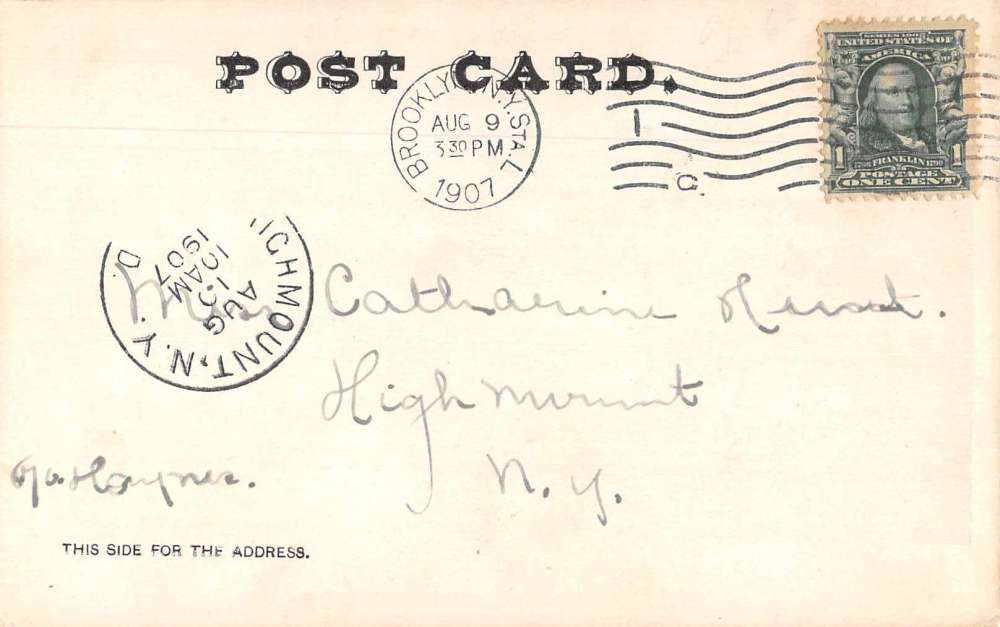 POST CARD.
SERIES 1902
UNITED STATES OF
AMERICA
1 FRANKLIN 1
POSTAGE
ONE CENT
BROOKLYN, N.Y. STA. L
AUG 9
3 30 PM
1907
1
C.
ICHMOUNT, N.Y.
AUG
10 AM
1907
Miss Catharine
High mount
N. Y.
c/o Haynes.
THIS SIDE FOR THE ADDRESS.